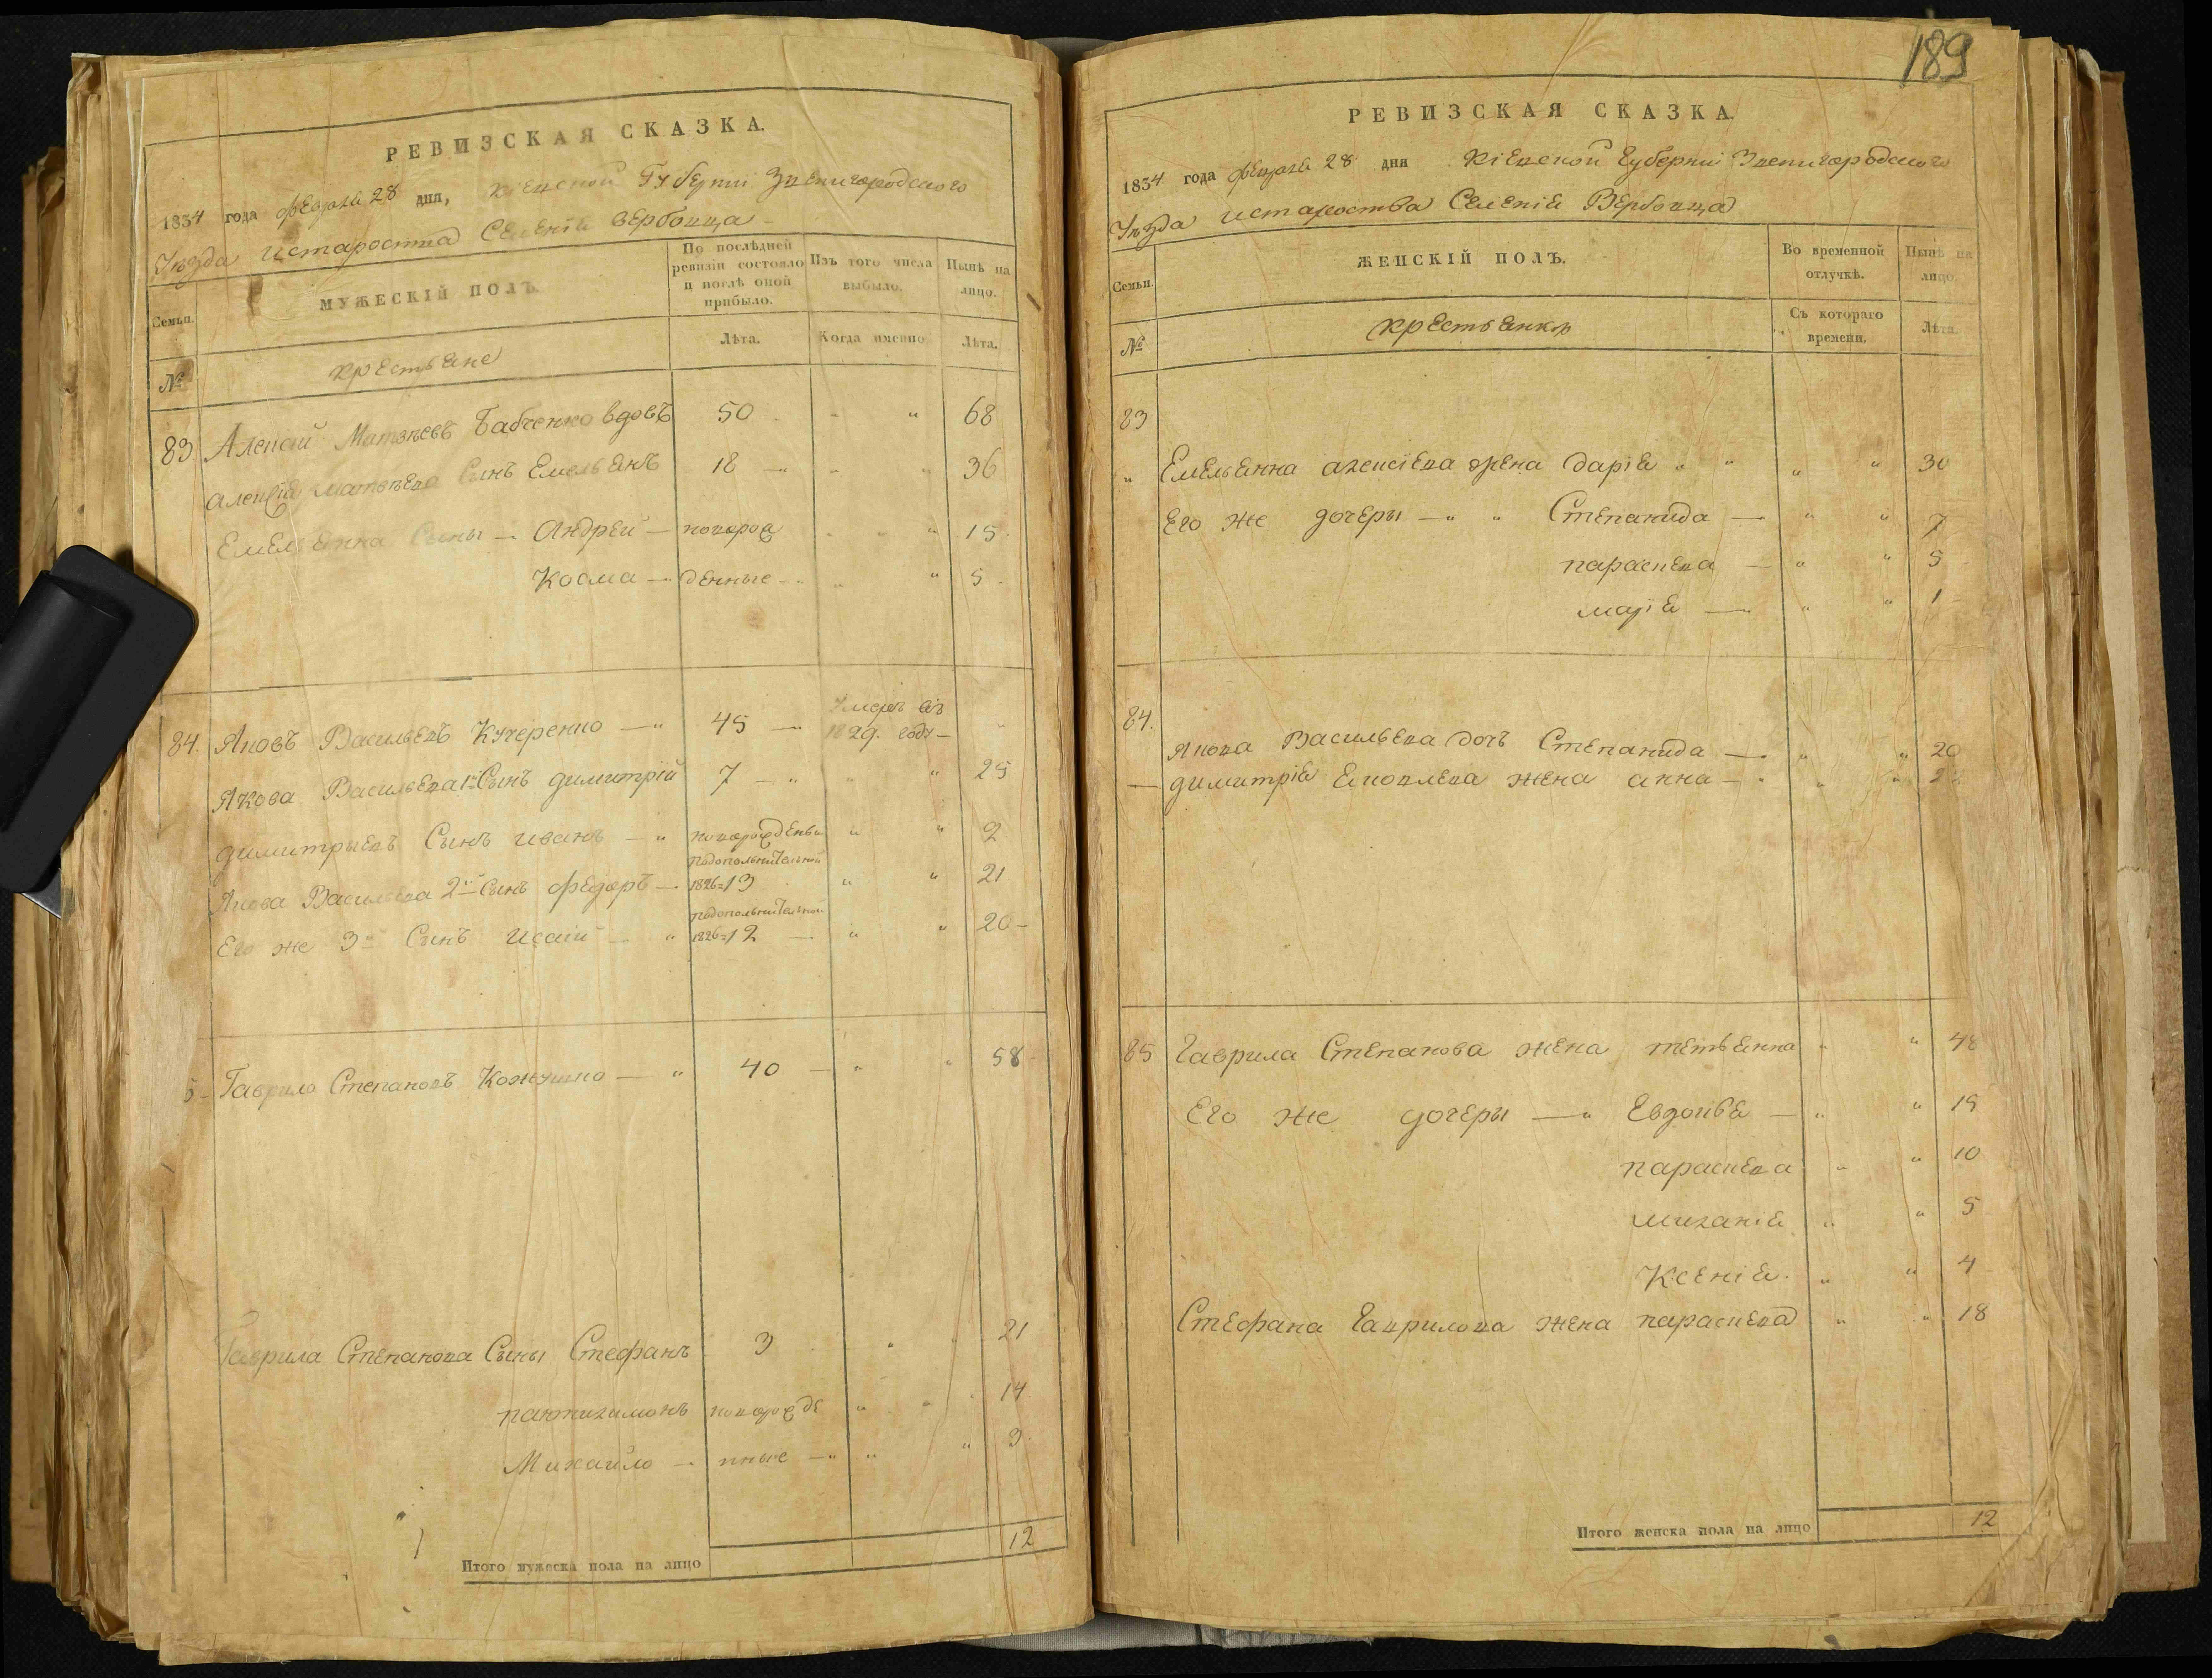 РЕВИЗСКАЯ СКАЗКА.
1834 года февраля 28 дня, Кіевской Губерніи Звенигородского
Уѣзда и староства Селенія Вербовца
Семьи. МУЖЕСКІЙ ПОЛЪ. По послѣдней ревизіи состояло и послѣ оной прибыло. Изъ того числа выбыло. Нынѣ на лицо.
№ крестьяне Лѣта. Когда именно Лѣта.
83. Алексій Матвѣевъ Бабченко вдовъ 50 " " 68
Алексія Матвѣева Сынъ Емельянъ 18 " " 36
Емельянна Сыны Андрей новорож " " 15
Косма денные " " 5
84. Яковъ Васильевъ Кучеренко 45 Умеръ въ 1829. году "
Якова Васильева 1й Сынъ димитрій 7 " " 25
димитрыевъ Сынъ иванъ новорожденъ " " 2
подополнительной
Якова Васильева 2й Сынъ федоръ 1826=13 " " 21
подополнительной
Его же 3й Сынъ Исаій 1826=12 " " 20
5 Гаврило Степановъ Кожушко 40 " " 58
Гаврила Степанова Сыны Стефанъ 3 " " 21
пантилимонъ новорожде " " 14
Михаило нные " " 3
Итого мужеска пола на лицо 12
189
РЕВИЗСКАЯ СКАЗКА.
1834 года февраля 28 дня Кіевской Губерніи Звенигородского
Уѣзда и староства Селенія Вербовца
Семьи. ЖЕНСКІЙ ПОЛЪ. Во временной отлучкѣ. Нынѣ на лицо.
№ крестьянки Съ котораго времени. Лѣта.
83
" Емельянна алексіева жена дарія " " 30
Его же дочеры Степанида " " 7
параскева " " 5
марія " " 1
84.
Якова Васильева дочъ Степанида " " 20
димитрія Яковлева жена анна " "
85 Гаврила Степанова жена тетьянна " " 48
Его же дочеры Евдокія " " 15
параскева " " 10
миланія " " 5
Ксенія. " " 4
Стефана Гаврилова жена параскева " " 18
Итого женска пола на лицо 12